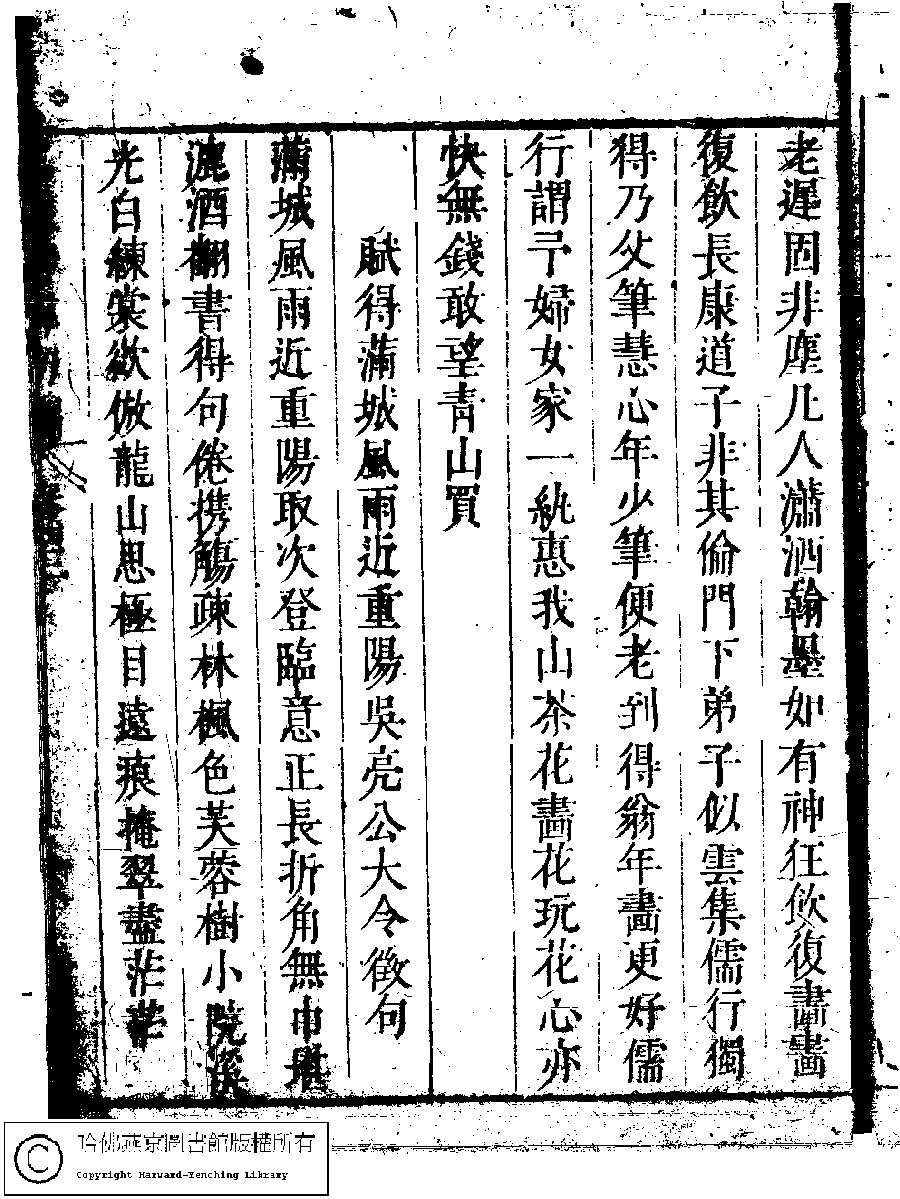 老遲固非塵几人瀟洒翰墨如有神狂飲復畵畵
復飲長康道子非其倫門下弟子似雲集儒行獨
得乃父筆慧心年少筆便老到得翁年畵更好儒
行謂予婦女家一紈惠我山茶花畵花玩花心亦
快無錢敢望青山買
賦得滿城風雨近重陽吳亮公大令徵句
滿城風雨近重陽取次登臨意正長折角無巾堪
漉酒翻書得句倦携觴疎林楓色芙蓉樹小院溪
光白練裳欲倣龍山思極目遠痕掩翠盡茫茫
哈佛燕京圖書館版權所有
Copyright Harvard-Yenching Library